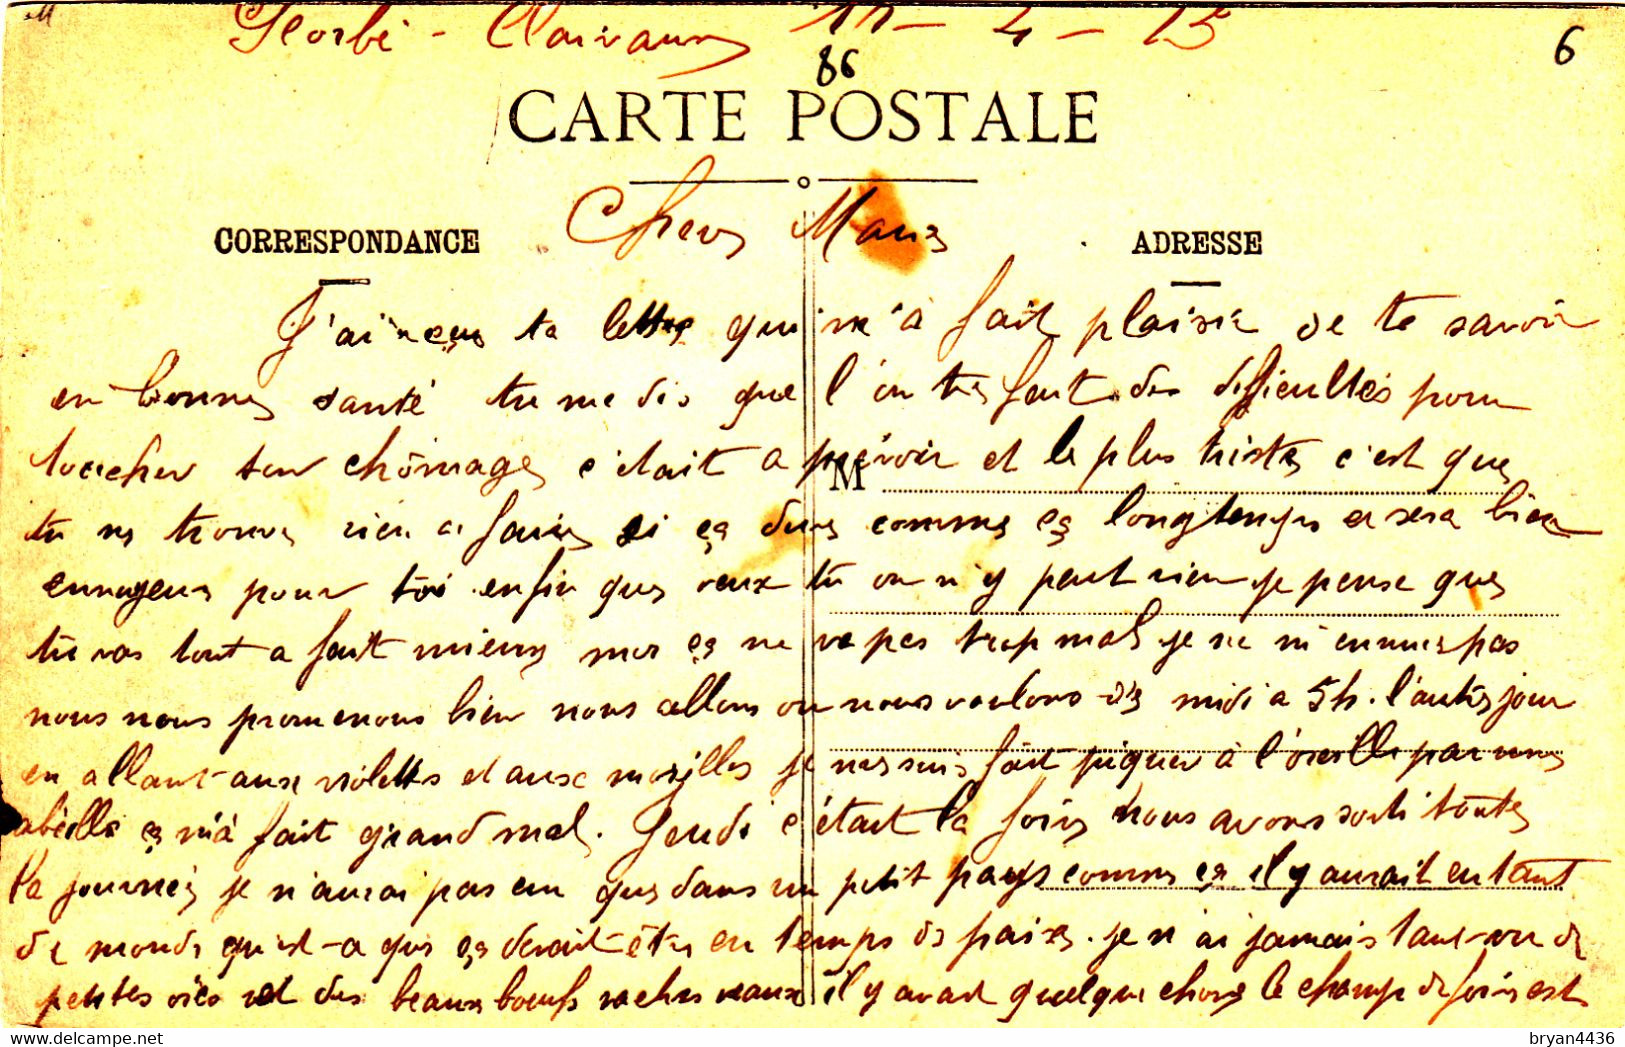 Clairvaux 11 - 4 - 15
86
6
CARTE POSTALE
CORRESPONDANCE
ADRESSE
Chers Marie
J'ai reçus ta lettre qui m'à fait plaisir de te savoir
en bonnes santé tu me dis que l'on tes fait des difficultés pour
toucher ton chômages c'était a prévoir et le plus tristes c'est ques
M
tu ne trouves rien a faires si ça dures comme ça longtemps ce sera bien
ennuyeux pour toi enfin ques veux tu on n'y peut rien je pense ques
tu vas tout a fait mieux moi ça ne va pas trop mal je ne m'ennuies pas
nous nous promenons bien nous allons ou nous voulons dès midi a 5h. l'autres jour
en allant aux violettes et aux morilles je mes suis fait piquer à l'oreille par unes
abeille ça m'à fait grand mal. Jeudi c'était la foires nous avons sorti toutes
la journeés je n'aurai pas cru ques dans un petit pays comme ça il y aurait eu tant
de monde qu'est-a ques ça devait êtres en temps de paixs. je n'ai jamais tant vu de
petites et des beaux boeufs vaches veaux il y avait quelques choses le champ de foires est
bryan4436
delcampe.net